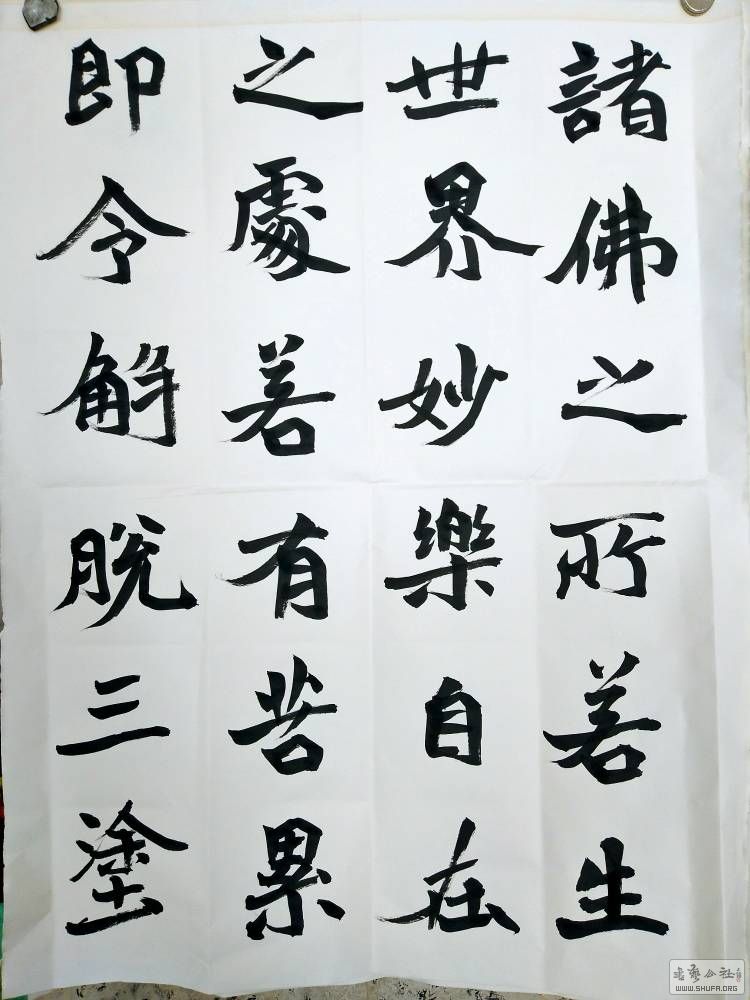 諸佛之所若生
世界妙樂自在
之處若有苦累
即令解脫三塗
书艺公社
WWW.SHUFA.ORG